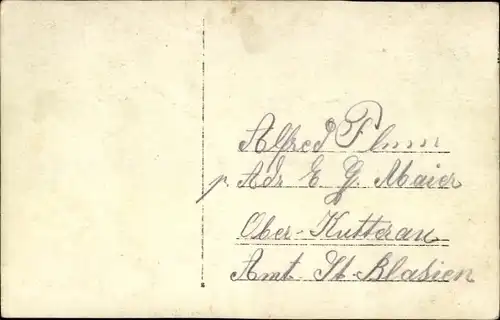 Alfred Flum
p. Adr E G. Maier
Ober-Kutterau
Amt. St. Blasien